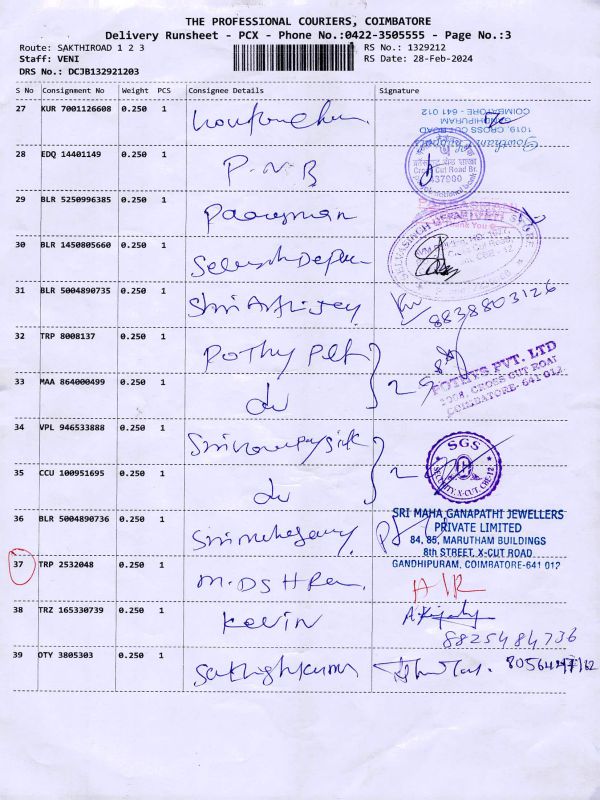 THE PROFESSIONAL COURIERS, COIMBATORE
Delivery Runsheet - PCX - Phone No.:0422-3505555 - Page No.:3
Route: SAKTHIROAD 1 2 3
RS No.: 1329212
Staff: VENI
RS Date: 28-Feb-2024
DRS No.: DCJB132921203
S No Consignment No Weight PCS Consignee Details Signature
27 KUR 7001126608 0.250 1
1019, CROSS CUT ROAD
GANDHIPURAM
COIMBATORE - 641 012
28 EDQ 14401149 0.250 1 P.N.B
Cross Cut Road Br.
29 BLR 5250996385 0.250 1
30 BLR 1450805660 0.250 1
31 BLR 5004890735 0.250 1
8838803126
32 TRP 8008137 0.250 1 Pothy
33 MAA 864000499 0.250 1 do
2
POTHYS PVT. LTD
CROSS CUT ROAD
COIMBATORE- 641 012
34 VPL 946533888 0.250 1
35 CCU 100951695 0.250 1 do
2
SGS
SECURITY, X-CUT, CBE-12
36 BLR 5004890736 0.250 1
SRI MAHA GANAPATHI JEWELLERS
PRIVATE LIMITED
84, 85, MARUTHAM BUILDINGS
8th STREET, X-CUT ROAD
GANDHIPURAM, COIMBATORE-641 012
37 TRP 2532048 0.250 1 A/R
38 TRZ 165330739 0.250 1 Kevin
8825484736
39 OTY 3805303 0.250 1 Sakthishkumar